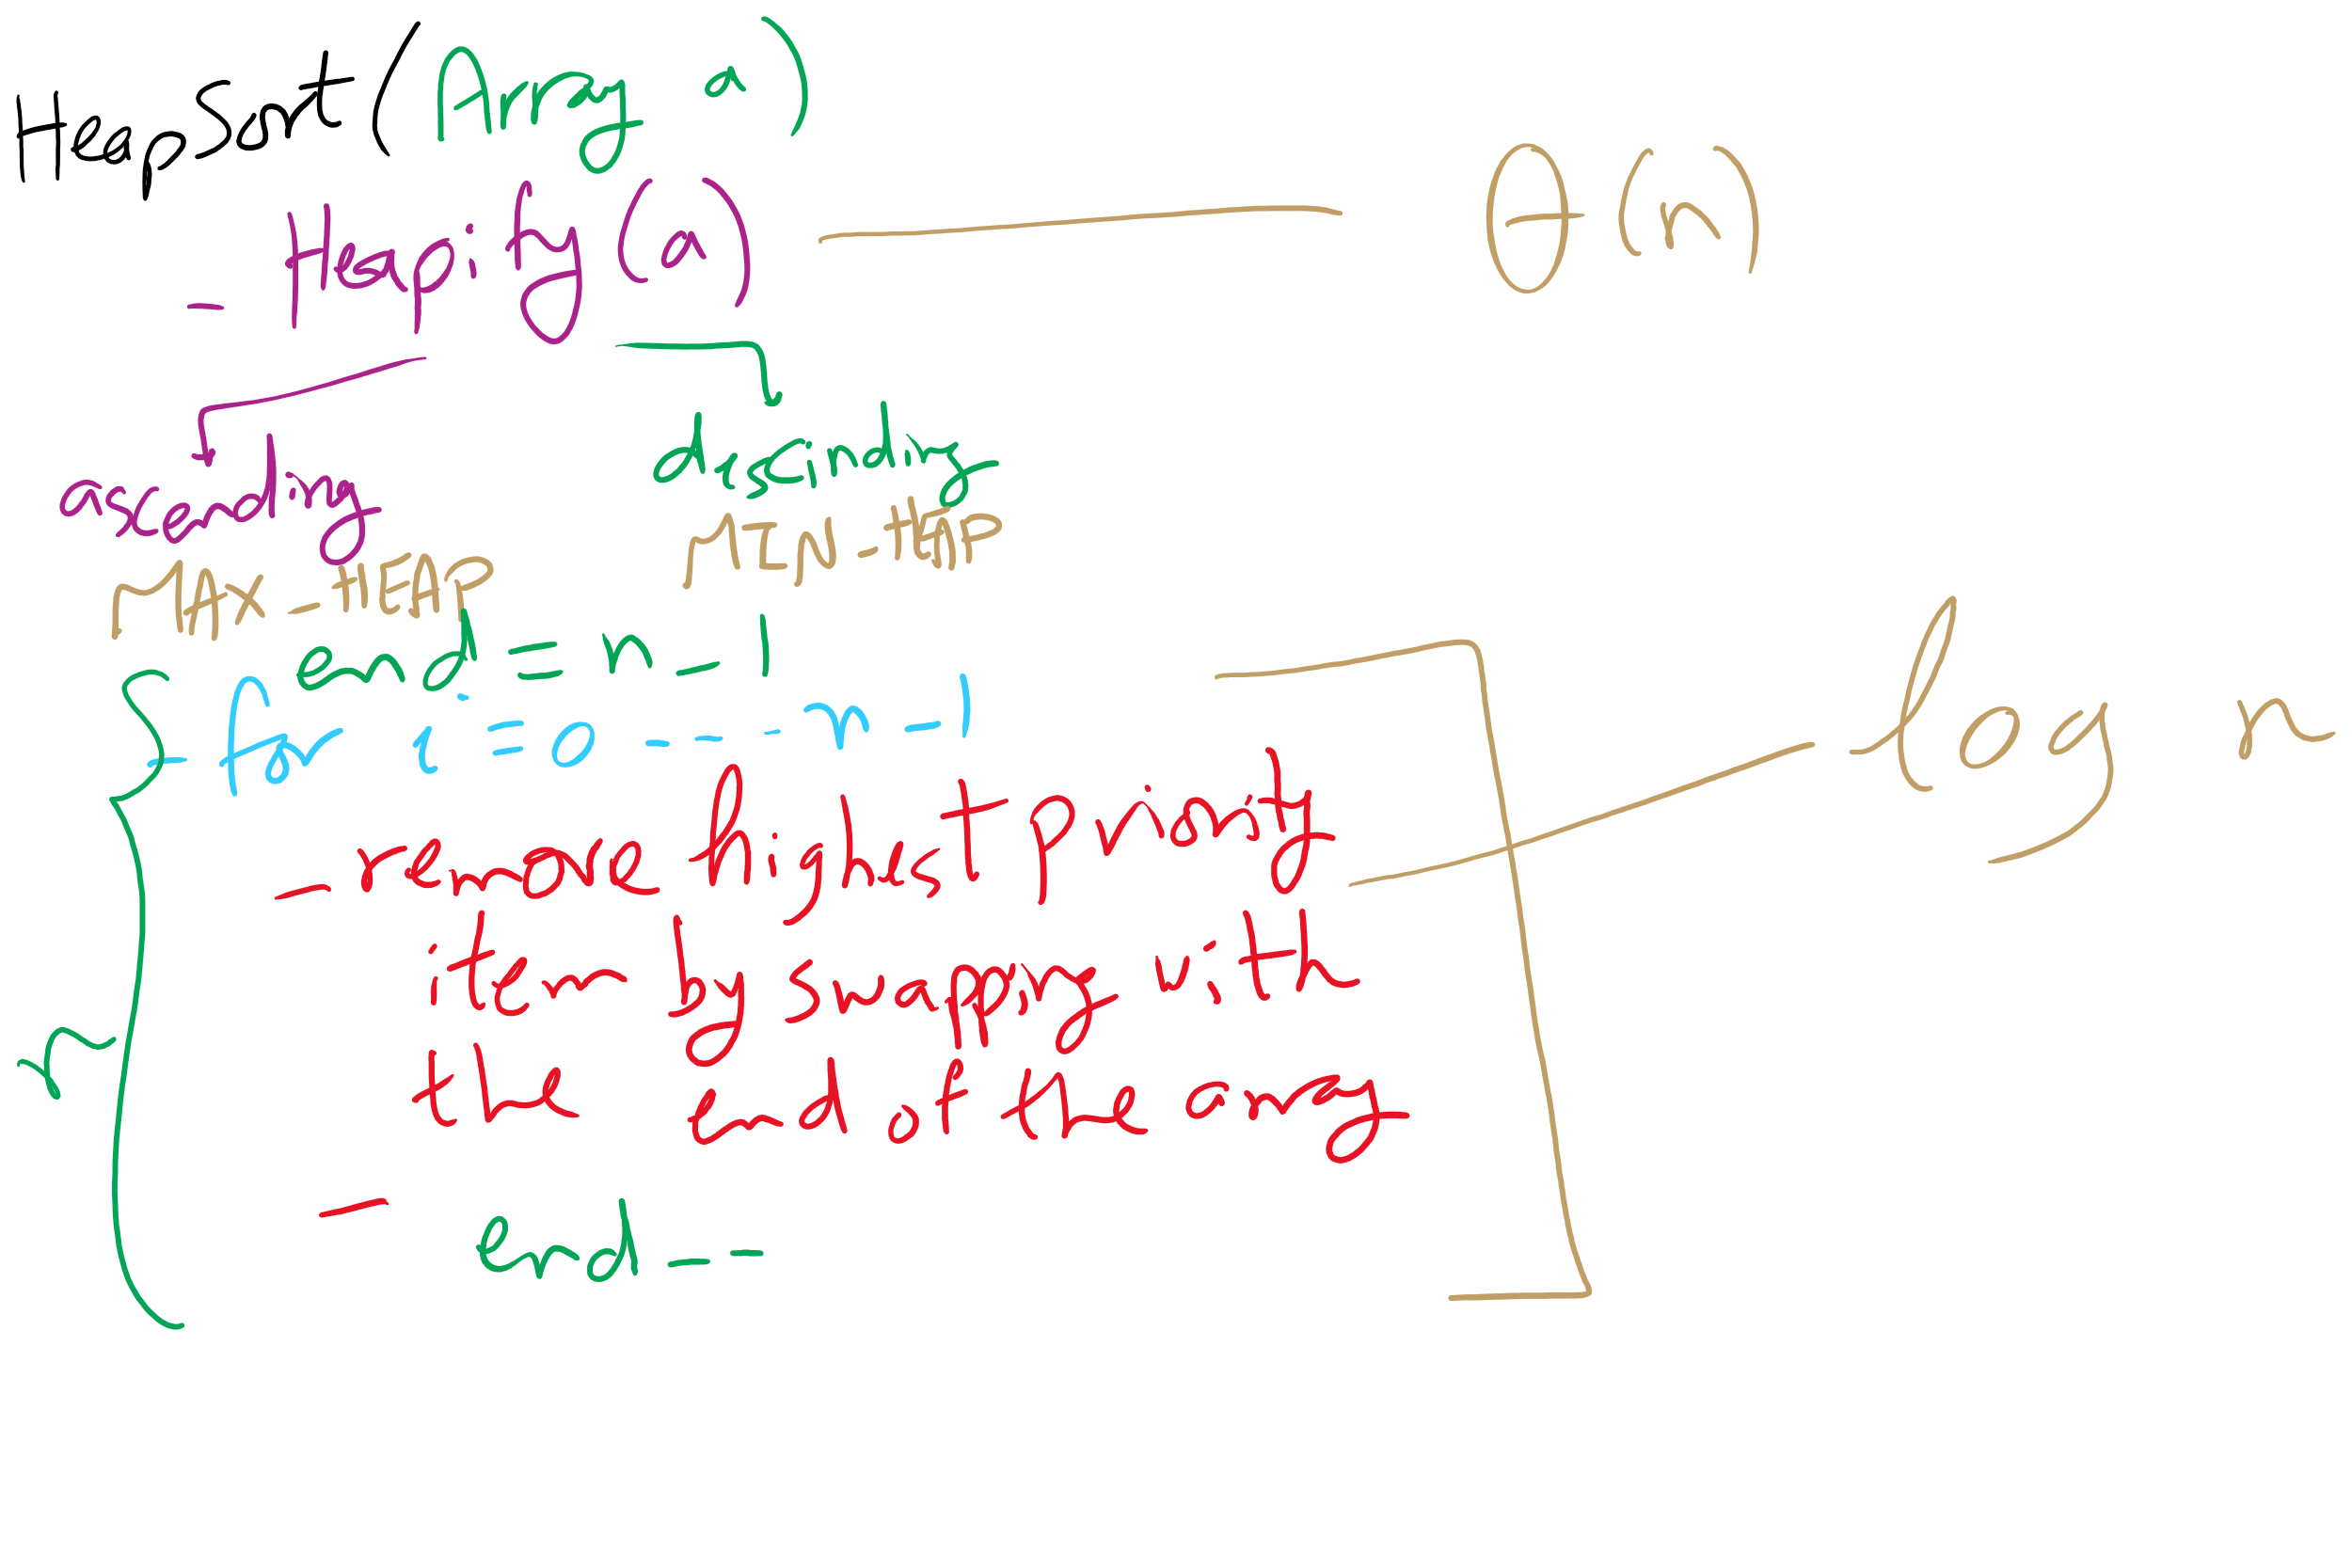 HeapSort(Array a)
- Heapify(a) θ(n)
ascending descinding
MAX-HEAP MIN-HEAP
end = n - 1
- for i = 0 - - - - n - 1
log n
- remove highest priority
item by swapping with
the end of the array
n
- end --